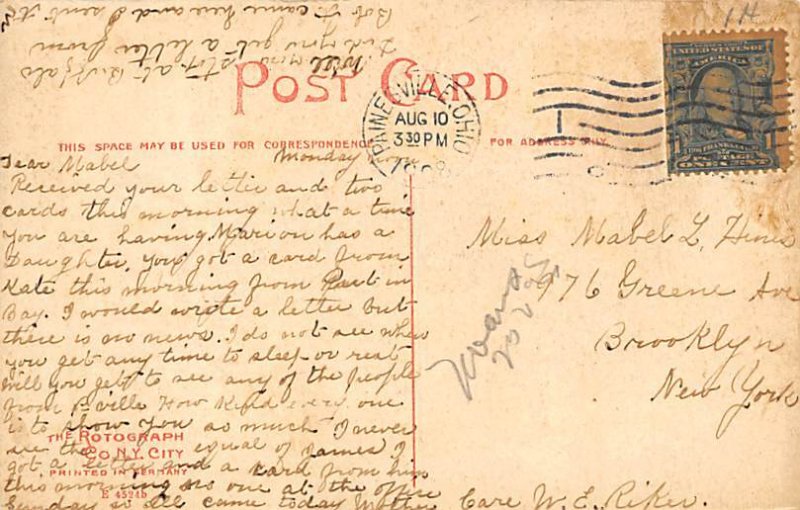 14
Bob F. came here and I sent it
Did you get a letter from
Will you stop at Buffalo
POST CARD
PAINESVILLE, OHIO
AUG 10
3 30 PM
UNITED STATES OF
AMERICA
FRANKLIN
1
POSTAGE
ONE CENT
THIS SPACE MAY BE USED FOR CORRESPONDENCE
FOR ADDRESS ONLY
Dear Mabel Monday
Received your letter and two
cards this morning what a time
you are having Marion has a
Daughter. You got a card from
Kate this morning from Put in
Bay. I would write a letter but
there is no news. I do not see when
you get any time to sleep or rest
will you get to see any of the people
from P-ville How Kind every one
is to show you so much I never
saw the equal of James I
got a letter and a card from him
this morning no one at the office
Sunday so all came today Mother
THE ROTOGRAPH
CO. N.Y. CITY
PRINTED IN GERMANY
E 4524b
Miss Mabel L. Hines
976 Greene Ave
Brooklyn
New York
Care W. E. Riker.